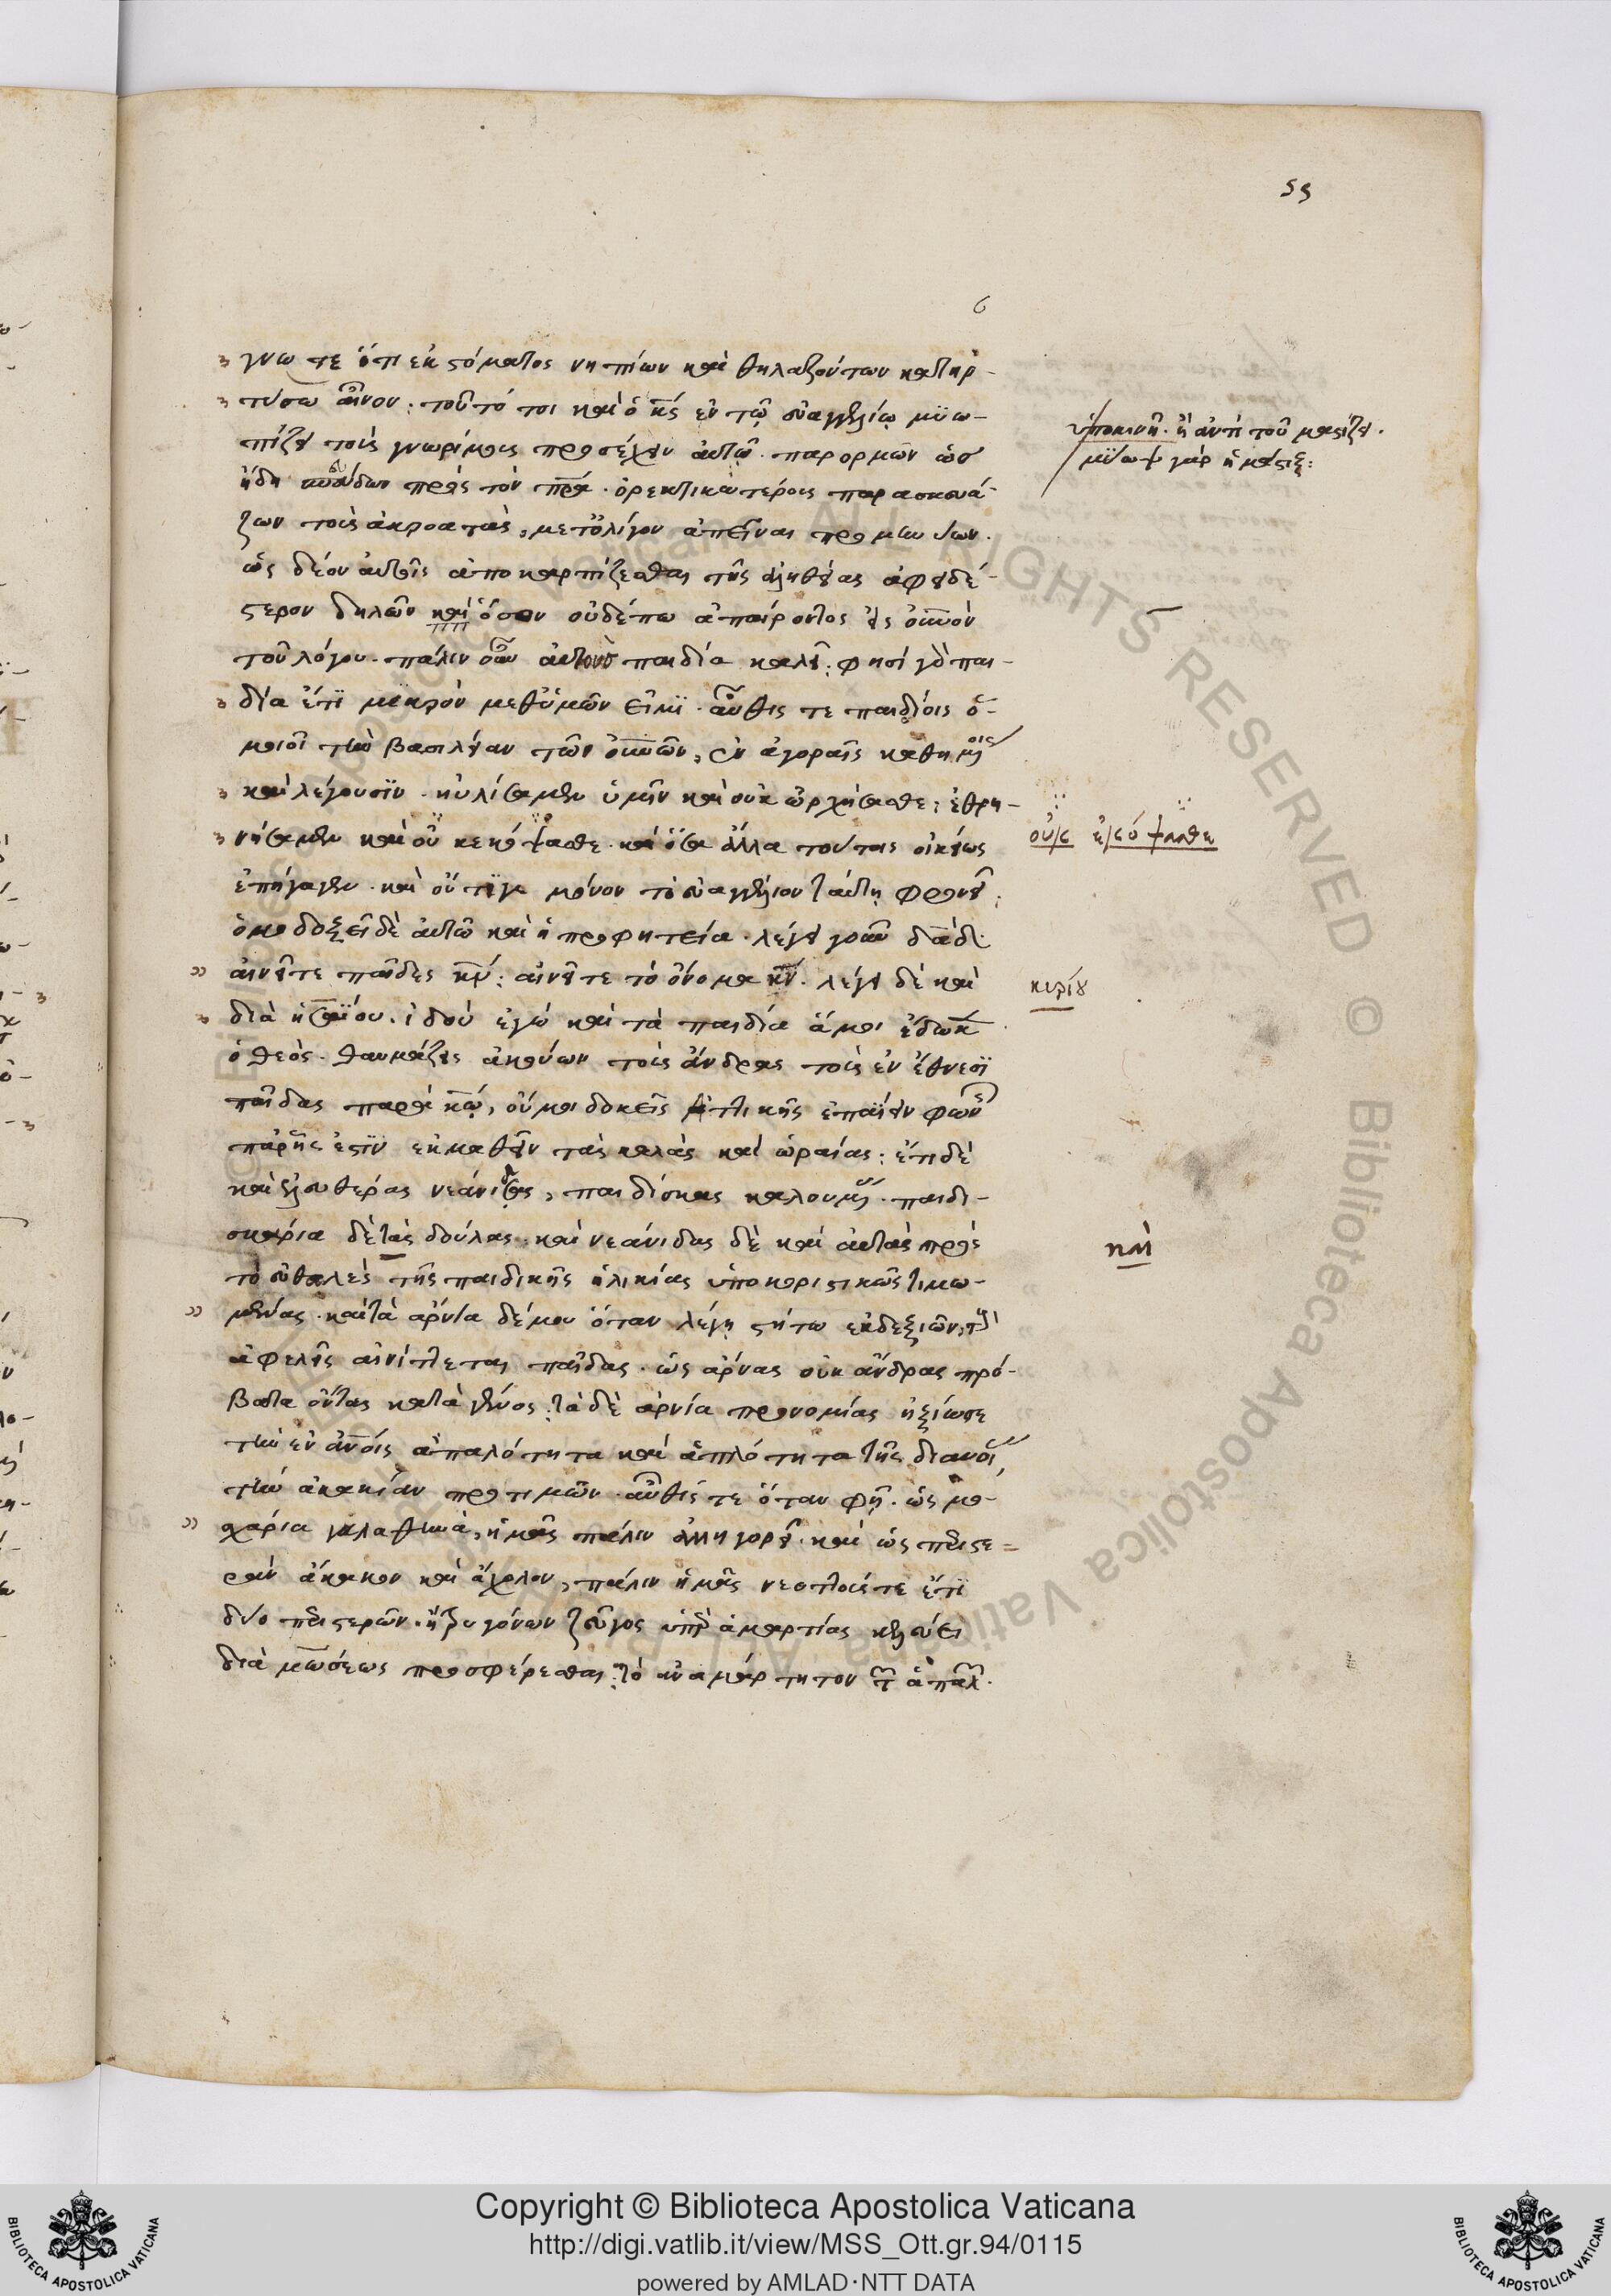 55
6
γνωτε ὅτι ἐκ στόματος νηπίων καὶ θηλαζόντων κατηρ-
τίσω αἶνον· τοῦτό τοι καὶ ὁ κς ἐν τῷ εὐαγγελίῳ μϋω-
πίζει τοὺς γνωρίμους προσέχειν αὐτῷ. παρορμῶν ὡς
ἤδη σπεύδων πρὸς τὸν πρα. ὀρεκτικωτέρους παρασκευά-
ζων τοὺς ἀκροατὰς, μετ' ὀλίγον ἀπεῖναι προμηνύων.
ὡς δέον αὐτοῖς ἀποκαρπίζεσθαι τῆς ἀληθείας ἀφειδέ-
στερον δηλῶν καὶ ὅσον οὐδέπω ἀπαίροντος εἰς οὐνὸν
τοῦ λόγου. πάλιν οὖν αὐτοὺς παιδία καλεῖ· φησὶ γὰρ παι-
δία ἔτϊ μικρὸν μεθ' ὑμῶν εἰμϊ. αὖθις τε παιδίοις ὁ-
μοιοῖ τὴν βασιλείαν τῶν οὐνῶν, ἐν ἀγοραῖς καθημένοις
καὶ λέγουσϊν. ηὐλίσαμεν ὑμῖν καὶ οὐκ ὠρχήσασθε· ἐθρη-
νήσαμεν καὶ οὐ κεκόψασθε. καὶ ὅσα ἄλλα τούτοις οἰκείως
ἐπήγαγεν. καὶ οὔ τϊ γε μόνον τὸ εὐαγγέλιον ταύτῃ φρονεῖ·
ὁμοδοξεῖ δὲ αὐτῷ καὶ ἡ προφητεία. λέγει γοῦν δαδ·
αἰνεῖτε παῖδες κν· αἰνεῖτε τὸ ὄνομα κυ. λέγει δὲ καὶ
διὰ ἡσαΐου. ἰδοὺ ἐγὼ καὶ τὰ παιδία ἅ μοι ἔδωκ
ὁ θεὸς. θαυμάζεις ἀκούων τοὺς ἄνδρας τοὺς ἐν ἔθνεσϊ
παῖδας παρὰ κῳ, οὔ μοι δοκεῖς ἀττικῆς ἐπαΐειν φωνῆς
παρ' ἧς ἐστϊν ἐκμαθεῖν τὰς καλὰς καὶ ὡραίας· ἔτι δὲ
καὶ ἐλευθέρας νεάνιδας, παιδίσκας καλουμένας. παιδι-
σκάρια δὲ τὰς δούλας· καὶ νεάνιδας δὲ καὶ αὐτὰς πρὸς
τὸ εὐθαλὲς τῆς παιδικῆς ἡλικίας ὑποκοριστικῶς τιμω-
μένας. καὶ τὰ ἀρνία δέ μου ὅταν λέγῃ στήτω ἐκ δεξιῶν, τοὺς
ἀφελεῖς αἰνίττεται παῖδας. ὡς ἄρνας οὐκ ἄνδρας πρό-
βατα ὄντας κατὰ γένος· τὰ δὲ ἀρνία προνομίας ἠξίωσε
τὴν ἐν ἀνοις ἁπαλότητα καὶ ἁπλότητα τῆς διανοίας,
τὴν ἀκακίαν προτιμῶν. αὖθις τε ὅταν φῇ. ὡς μο-
σχάρια γαλαθηνὰ, ἡμᾶς πάλιν ἀλληγορεῖ. καὶ ὡς περιστε=
ρὰν ἄκακον καὶ ἄχολον, πάλιν ἡμᾶς νεοττούς τε ἔτϊ
δύο περιστερῶν. ἢ τρυγόνων ζεῦγος ὑπὲρ ἁμαρτίας κελεύει
διὰ μωσέως προσφέρεσθαι· τὸ ἀναμάρτητον τ ἁπαλ.
ὑποκινεῖ. ἢ ἀντὶ τοῦ μαστίζει.
μϋωψ γὰρ ἡ μάστιξ:
οὐκ ἐκόψασθε
κυρίου
καὶ
Copyright © Biblioteca Apostolica Vaticana
http://digi.vatlib.it/view/MSS_Ott.gr.94/0115
powered by AMLAD·NTT DATA